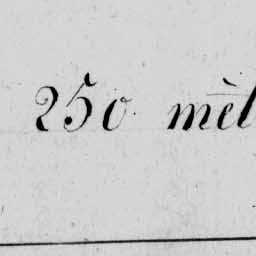 250 mèl